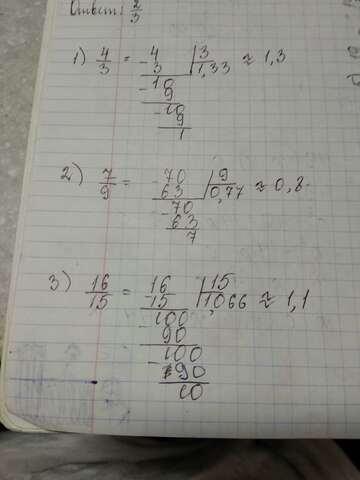 Ответ: 2/3
1) 4/3 = 4 | 3 ≈ 1,3
- 3 | 1,33
- 10
9
- 10
9
1
2) 7/9 = 70 | 9 ≈ 0,8
- 63 | 0,77
- 70
63
7
3) 16/15 = 16 | 15 ≈ 1,1
- 15 | 1,066
- 100
90
- 100
90
10